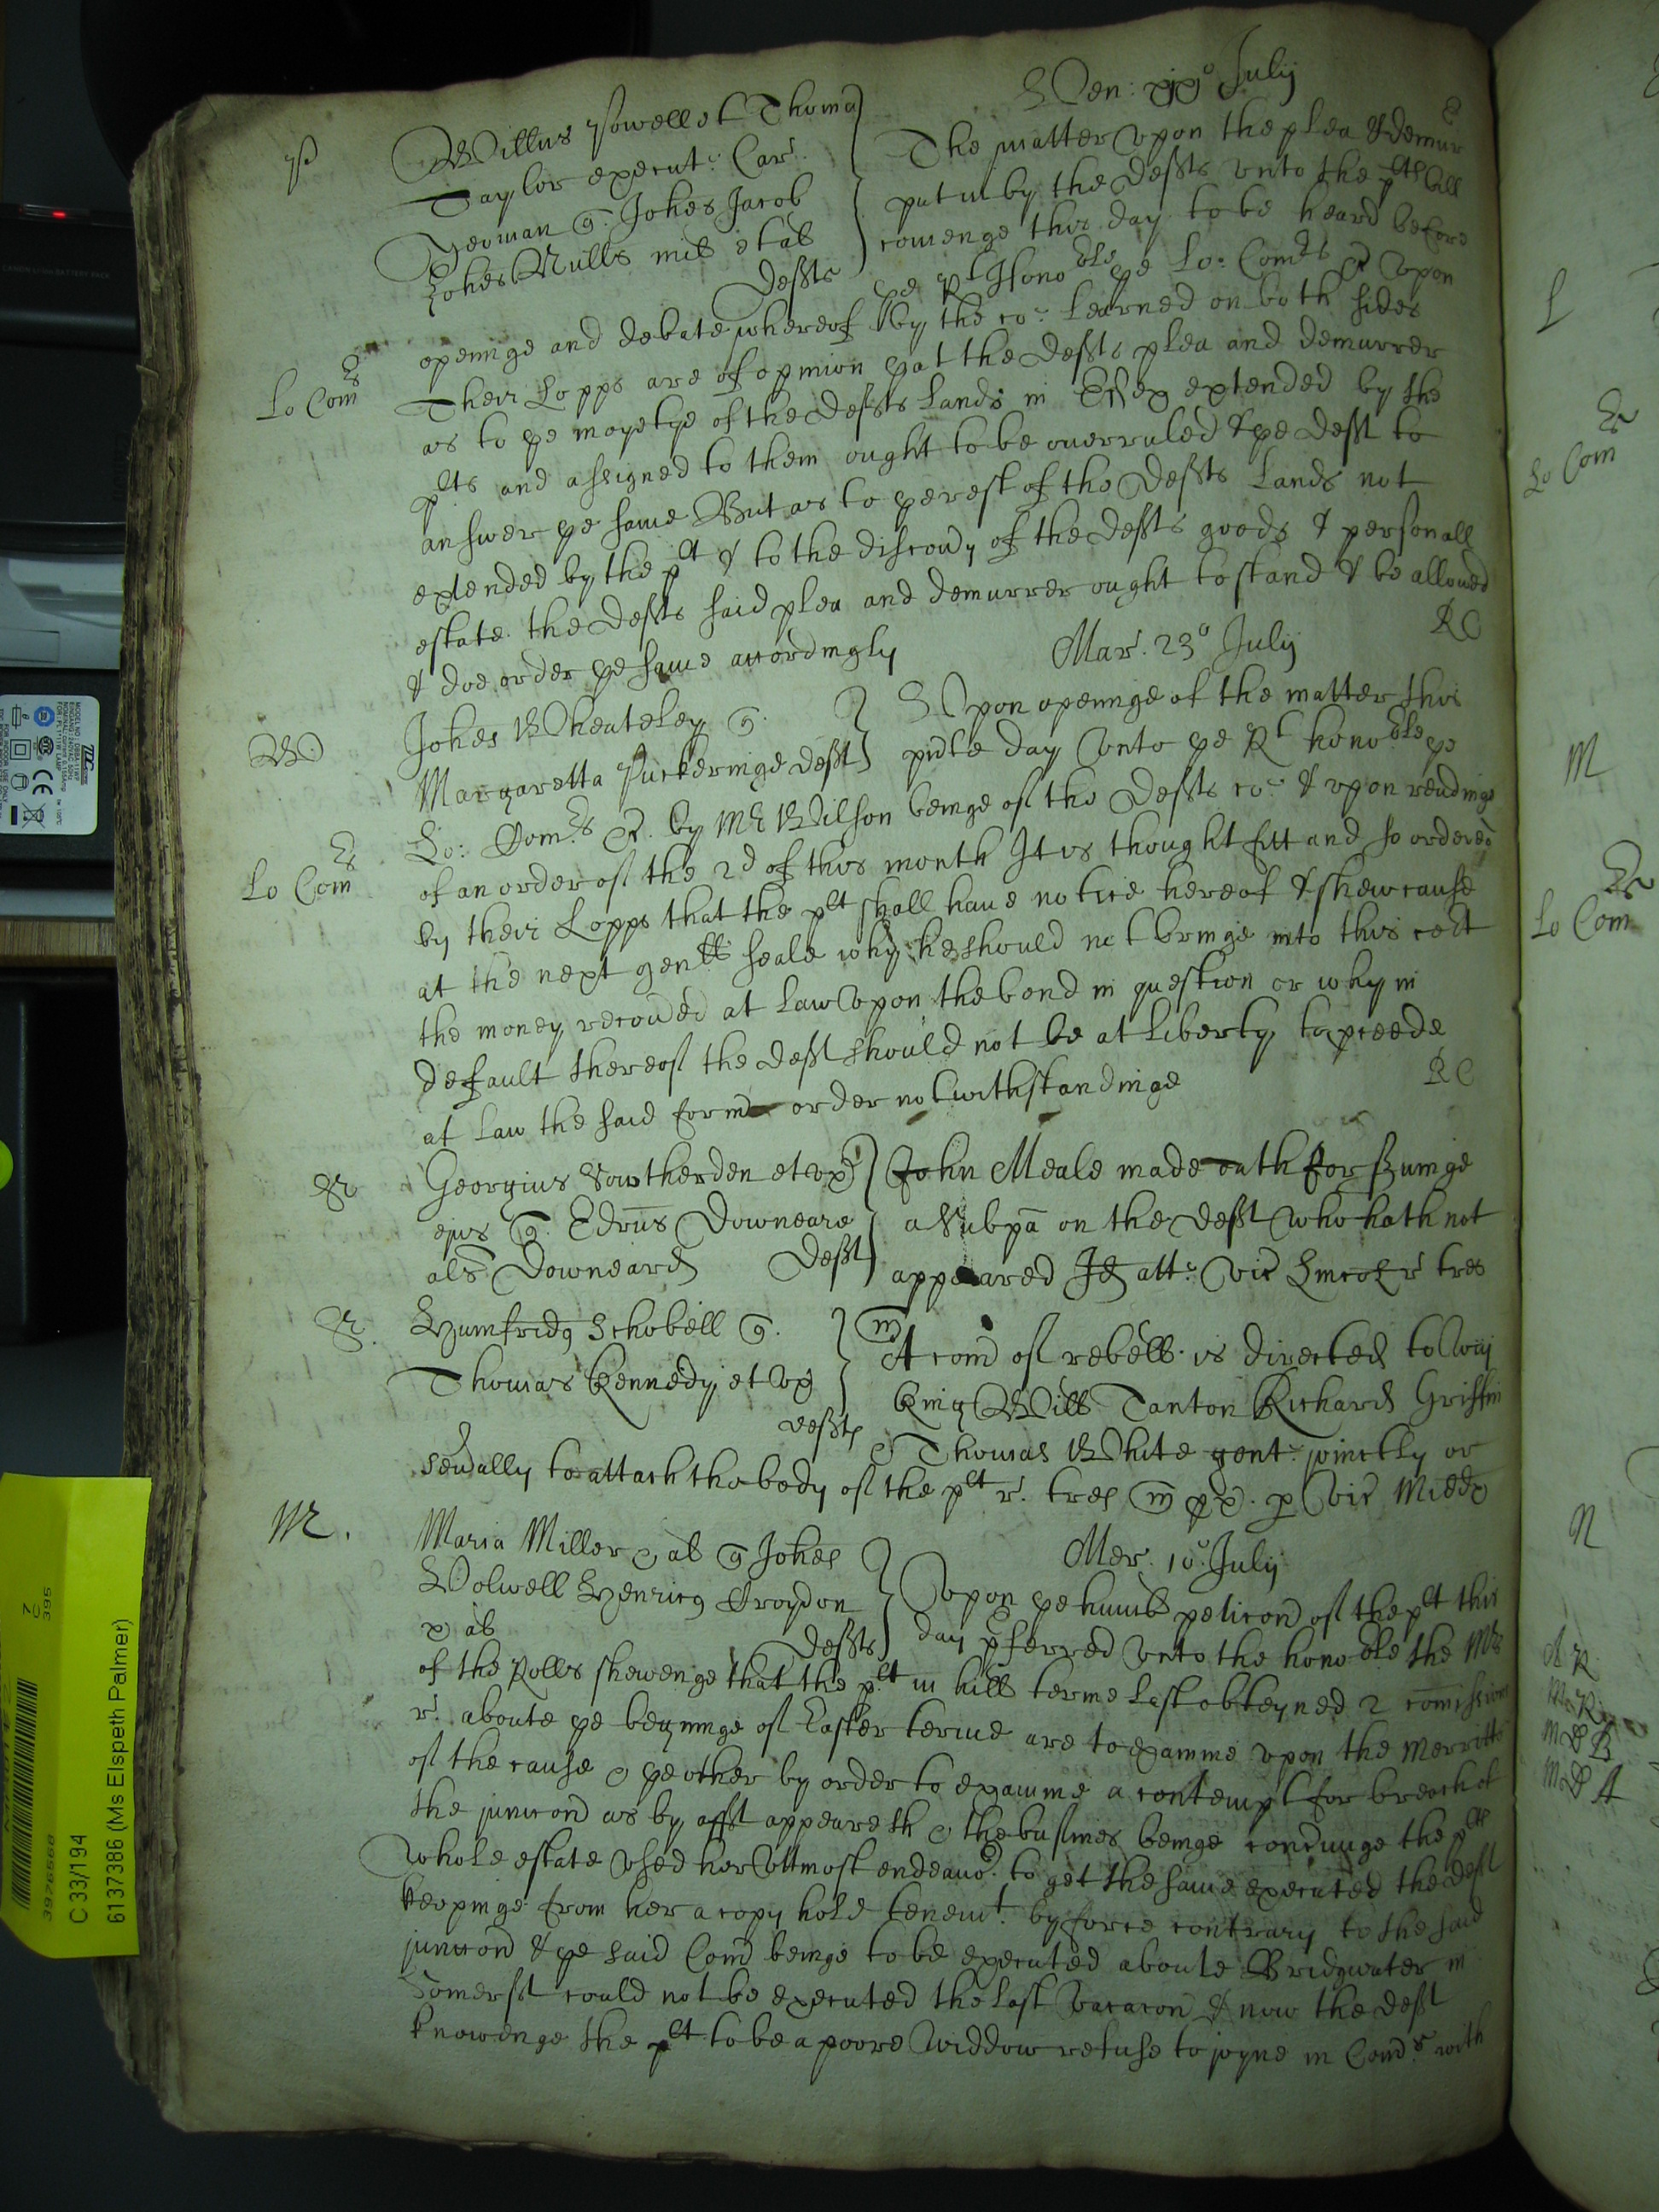 Ven: xix° July
P
Willus Powell et Thoma
Taylor execut: Car.
Yeoman q. Johes Jacob
Johes Mills mil et al
Defts
The matter vpon the plea & demur
put in by the Defts vnto the plts bill
comenge this day to be heard before
ye Rt Honoble ye Lo: Comrs & vpon
openinge and debate whereof by the co: learned on both sides
Lo Comrs
Their Lopps are of opinion yat the Defts plea and demurrer
as to ye moyetye of the Defts Lands in Essex extended by the
plts and assigned to them ought to be ouerruled & ye Deft to
answer ye same But as to ye rest of the Defts Lands not
extended by the plt & to the discouy of the Defts goods & personall
estate the Defts said plea and demurrer ought to stand & be allowed
& doe order ye same accordingly
RC
Mar. 23° July
W
Johes Wheateley q.
Margaretta Puckeringe Deft
Vpon openinge of the matter this
pnte day vnto ye Rt honoble ye
Lo: Comrs &. by Mr Wilson beinge of the Defts co: & vpon readinge
Lo Comrs
of an order of the 2d of this month It is thought fitt and so ordered
by their Lopps that the plt shall haue notice hereof & shew cause
at the next genll seale why he should not bringe into this cort
the money recoued at Law vpon the bond in question or why in
default thereof the Deft should not be at Liberty to pceede
at Law the said form order notwithstandinge
RC
Georgius Southerden et vx
ejus q. Edrus Downeare
als Downeard Deft
John Meale made oath for servinge
a Subpa on the Deft who hath not
appeared Id att: vic r tres
Humfridq Schobell q.
Thomas Kennedy et vx
defts
m
A comd of rebell. is directed to
King Will Tanton Richard Griffin
Thomas White gent: joinctly or
seually to attach the body of the plt r. tres m px. p vic Midds
M.
Maria Miller al q Johes
Wolwell Henricq Croydon
al
Defts
Mer. 10° July
Vpon ye humb peticond of the plt this
day pferred vnto the honoble the Mr
of the Rolls shewenge that the plt in hill terme last obteyned 2 comissions
r. aboute ye beginninge of Easter terme are to examine vpon the merritts
of the cause & ye other by order to examine a contempt for breach of
the juncond as by afft appeareth & the busines beinge concninge the plts
whole estate vsed her vttmost endeauor to get the same executed the Deft
keepinge from her a copy hold tenemt. by force contrary to the said
juncond & ye said Comd beinge to be executed aboute Bridgwater in
Somersst could not be executed the last vacacon & now the Deft
knowenge the plt to be a poore widdow refuse to joyne in Comds with
L
Lo Comrs
M
Lo Com
N
A R
M R
M B
M A
C 33/194
61373786 (Ms Elspeth Palmer)
39765568
395